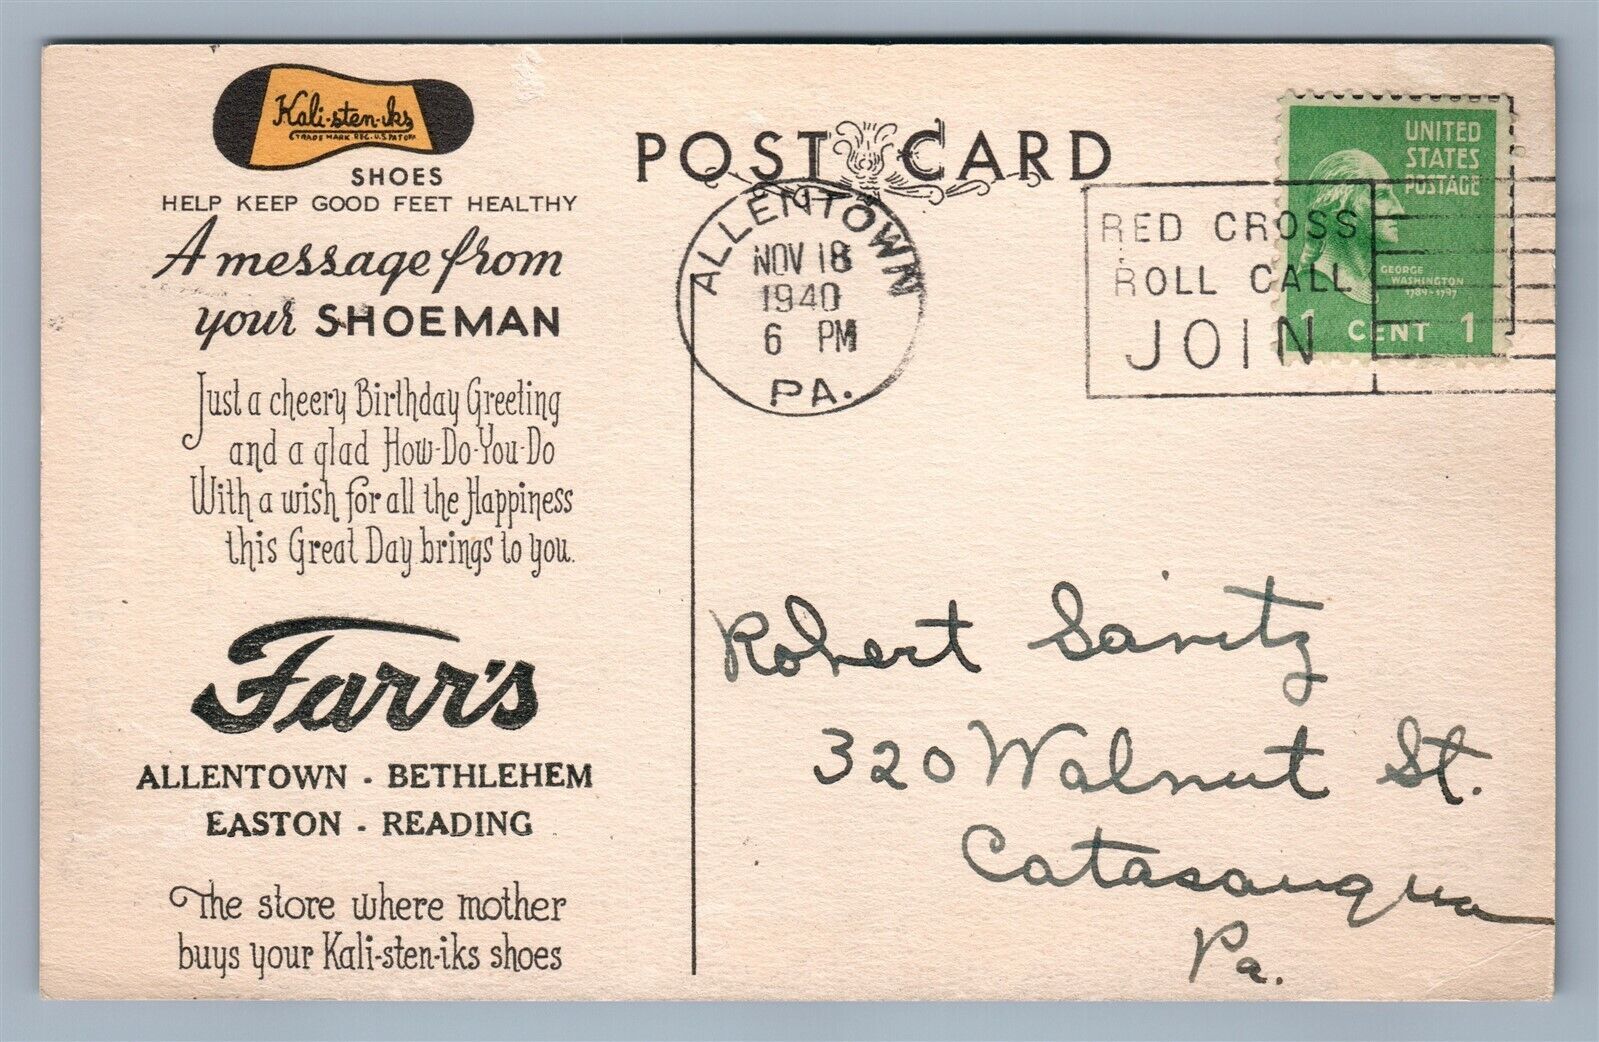 Kali-sten-iks
TRADE MARK REG. U.S. PAT. OFF.
SHOES
HELP KEEP GOOD FEET HEALTHY
A message from
your SHOEMAN
Just a cheery Birthday Greeting
and a glad How-Do-You-Do
With a wish for all the Happiness
this Great Day brings to you.
Farr's
ALLENTOWN - BETHLEHEM
EASTON - READING
The store where mother
buys your Kali-sten-iks shoes
POST CARD
ALLENTOWN
NOV 18
1940
6 PM
PA.
RED CROSS
ROLL CALL
JOIN
UNITED
STATES
POSTAGE
GEORGE
WASHINGTON
1789-1797
1 CENT 1
Robert
320 Walnut St.
Catasauqua
Pa.